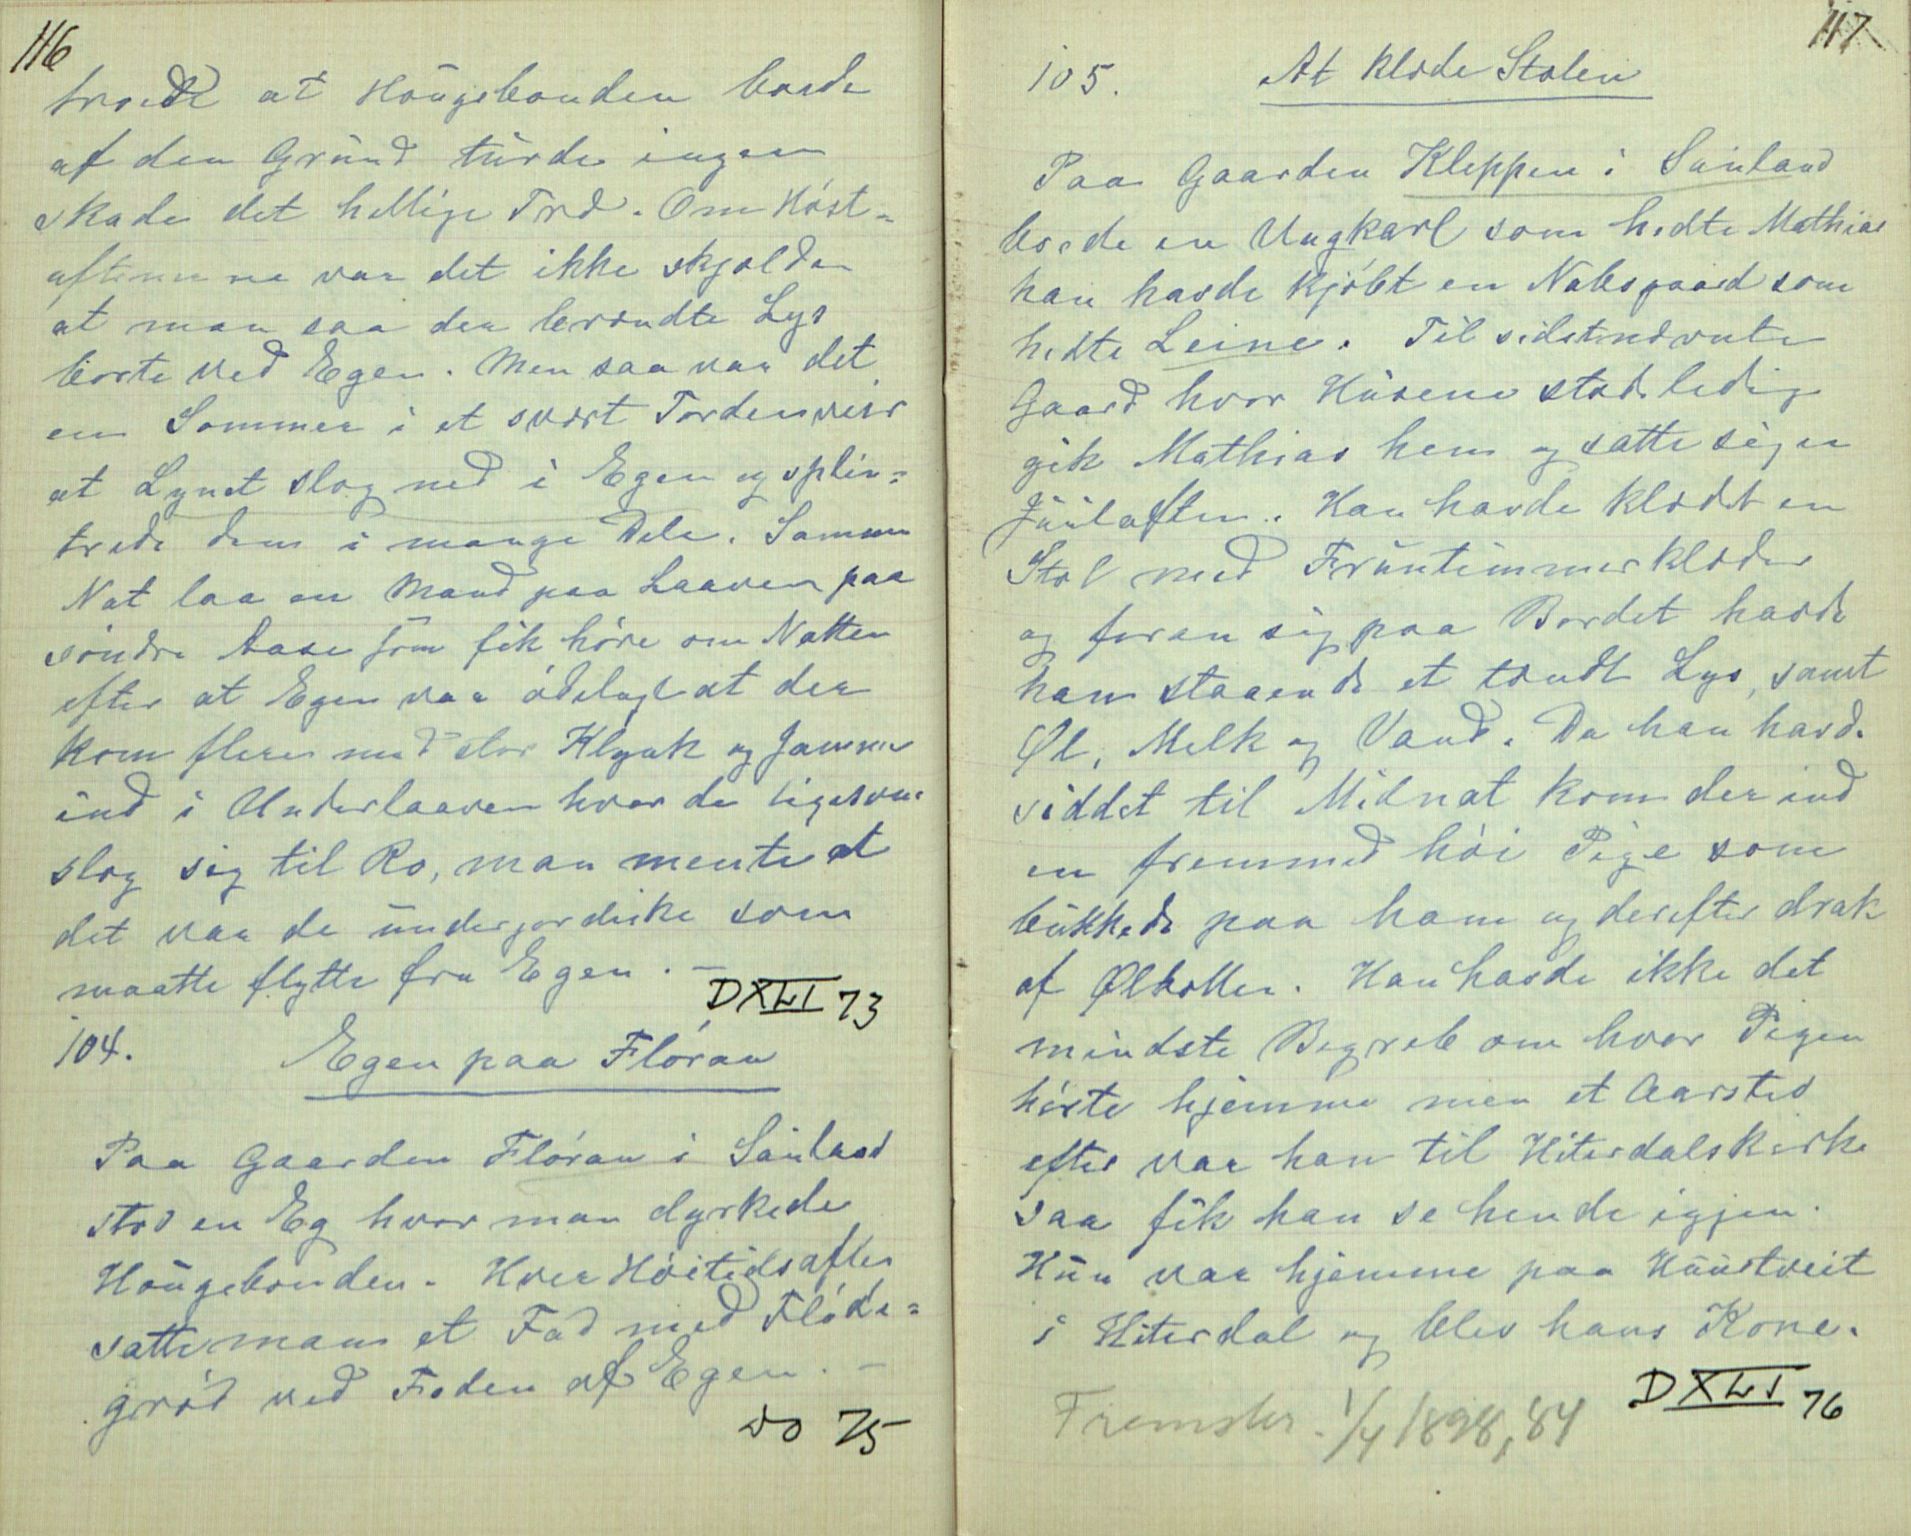 116
troede at Haugebonden boede
af den Grund turde ingen
skade det hellige Træ. Om Høst-
aftenerne var det ikke skjælden
at man saa der brændte Lys
borte ved Egen. Men saa var det
en Sommer i et svært Tordenveir
at Lynet slog ned i Egen og splin=
trede dem i mange Dele. Samme
Nat laa en Mand paa Laaven paa
søndre Aase som fik høre om Natten
efter at Egen var ødelagt at der
kom flere med stor Klynk og Jammer
ind i Underlaaven hvor de ligesom
slog sig til Ro, man mente at
det var de underjordiske som
maatte flytte fra Egen. –
DXLI 73
104.
Egen paa Flóran
Paa Gaarden Flóran i Sauland
stod en Eg hvor man dyrkede
Haugebonden. Hver Høitidsaften
satte man et Fad med Fløde=
grød ved Foden af Egen. –
do 75
117
105. At klæde Stolen
Paa Gaarden Kleppen i Sauland
boede en Ungkarl som hedte Mathias
han havde kjøbt en Nabogaard som
hedte Leine. Til sidstnævnte
Gaard hvor Husene stod ledig
gik Mathias hen og satte sig en
Juulaften. Han havde klædt en
Stol med Fruntimmerklæder
og foran sig paa Bordet havde
han staaende et tændt Lys, samt
Øl, Melk og Vand. Da han havde
siddet til Midnat kom der ind
en fremmed høi Pige som
bukkede paa ham og derefter drak
af Ølbollen. Han havde ikke det
mindste Begreb om hvor Pigen
hørte hjemme men et Aarstid
efter var han til Hiterdals kirke
saa fik han se hende igjen.
Hun var hjemme paa Haustveit
i Hiterdal og blev hans Kone.
DXLI 76
Fremskr. 1/4 1898, 84